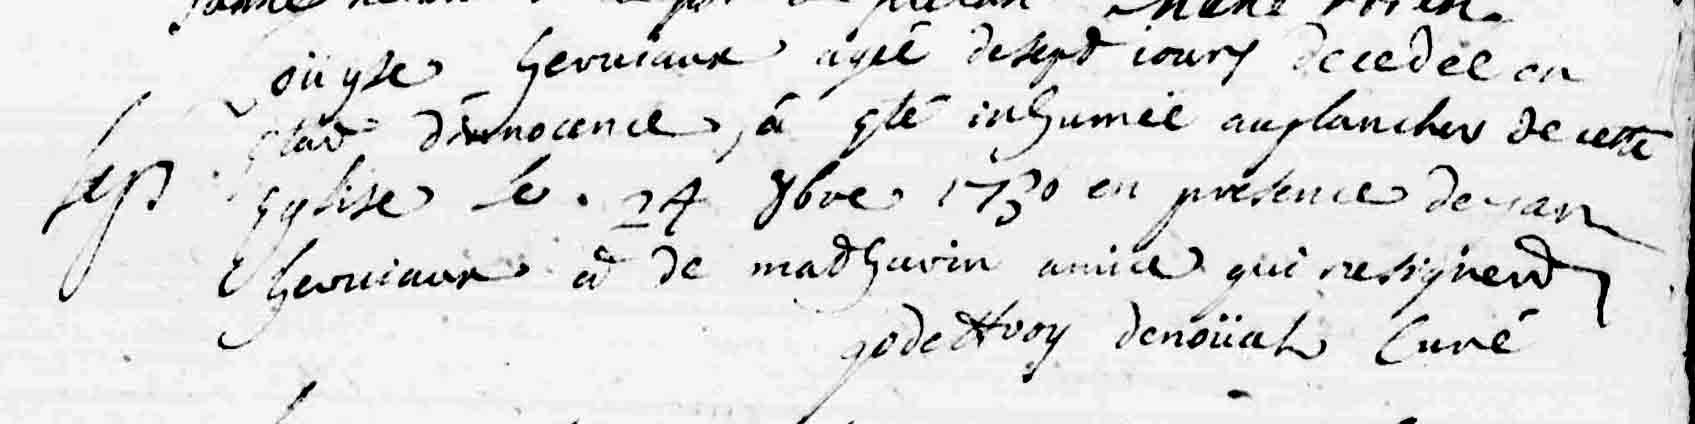 oüyse hervieaux agée de sept iours decedée en
etat d'innocence, á eté inhumée au plancher de cette
Sep eglise le . 24 9bre 1730 en presence de ian
hervieaux et de mathurin amice qui ne signent
godeffroy denoüal Curé